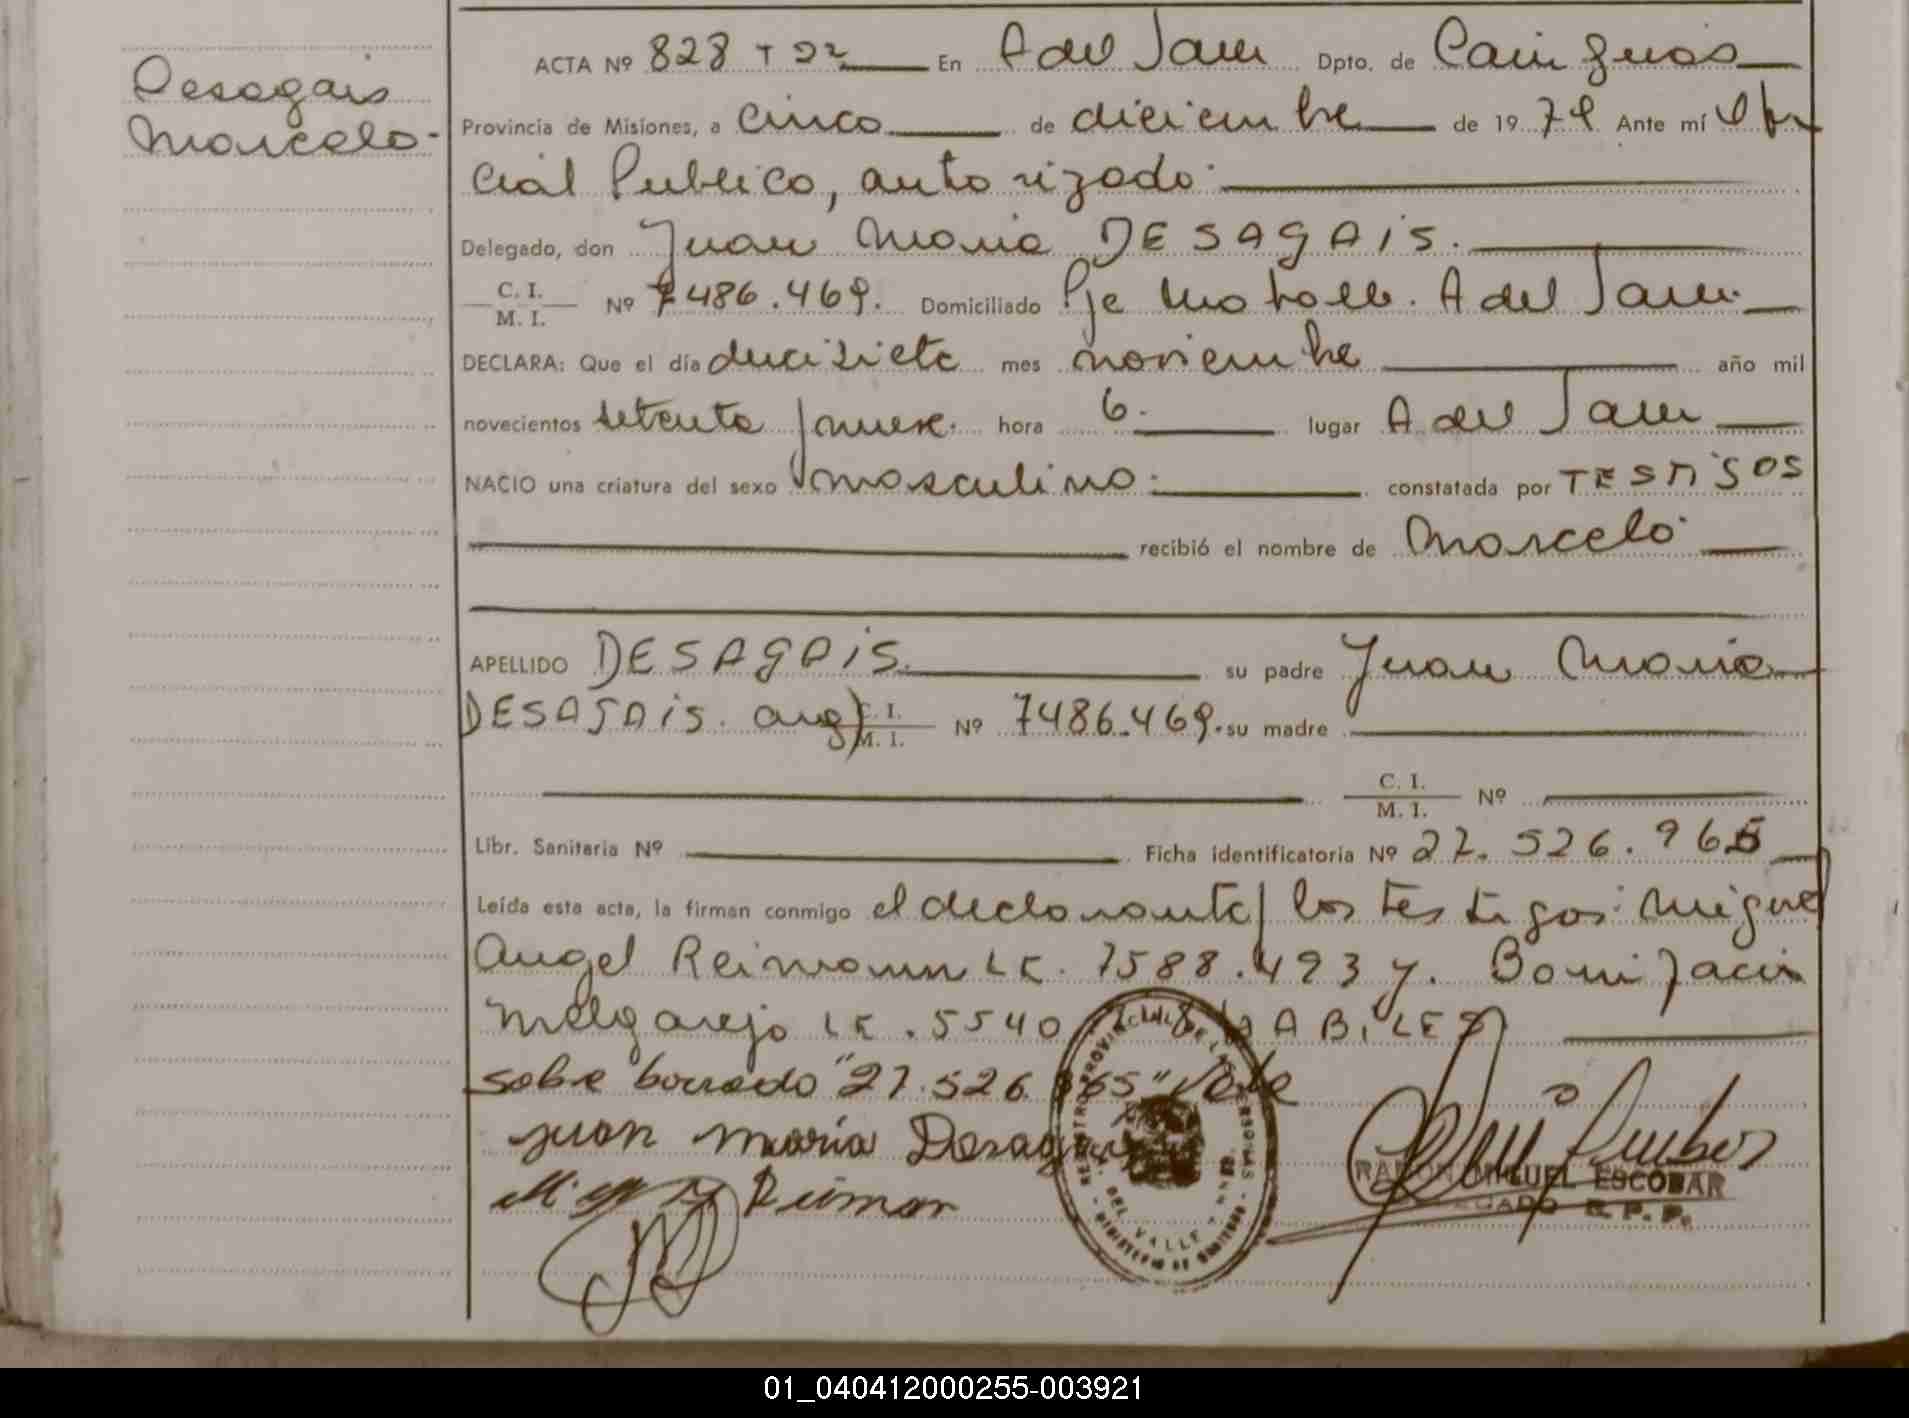 Desagais
Marcelo-
ACTA Nº 828 T 2º En A del Valle Dpto. de Cainguás
Provincia de Misiones, a cinco de diciembre de 1979 Ante mí Ofi
cial Publico, autorizado
Delegado, don Juan Maria DESAGAIS.
C. I.
M. I. Nº 7486.469. Domiciliado Pje A del Valle.
DECLARA: Que el día diecisiete mes noviembre año mil
novecientos setenta y nueve hora 6. lugar A del Valle
NACIO una criatura del sexo masculino constatada por TESTIGOS
recibió el nombre de Marcelo
APELLIDO DESAGAIS. su padre Juan Maria
DESAGAIS. arg) C. I.
M. I. Nº 7486.469. su madre
C. I.
M. I. Nº
Libr. Sanitaria Nº Ficha identificatoria Nº 27.526.965
Leída esta acta, la firman conmigo el declarante y los testigos: Miguel
Angel Reimann LE. 7588.493 y. Bonifacio
Melgarejo LE. 5540 HABILES
sobre borrado "27.526.965" Vale
Juan María Desagais
REGISTRO PROVINCIAL DE LAS PERSONAS
A. DEL VALLE - MNES.
RAMON MIGUEL ESCOBAR
DELEGADO R. P. P.
01_040412000255-003921